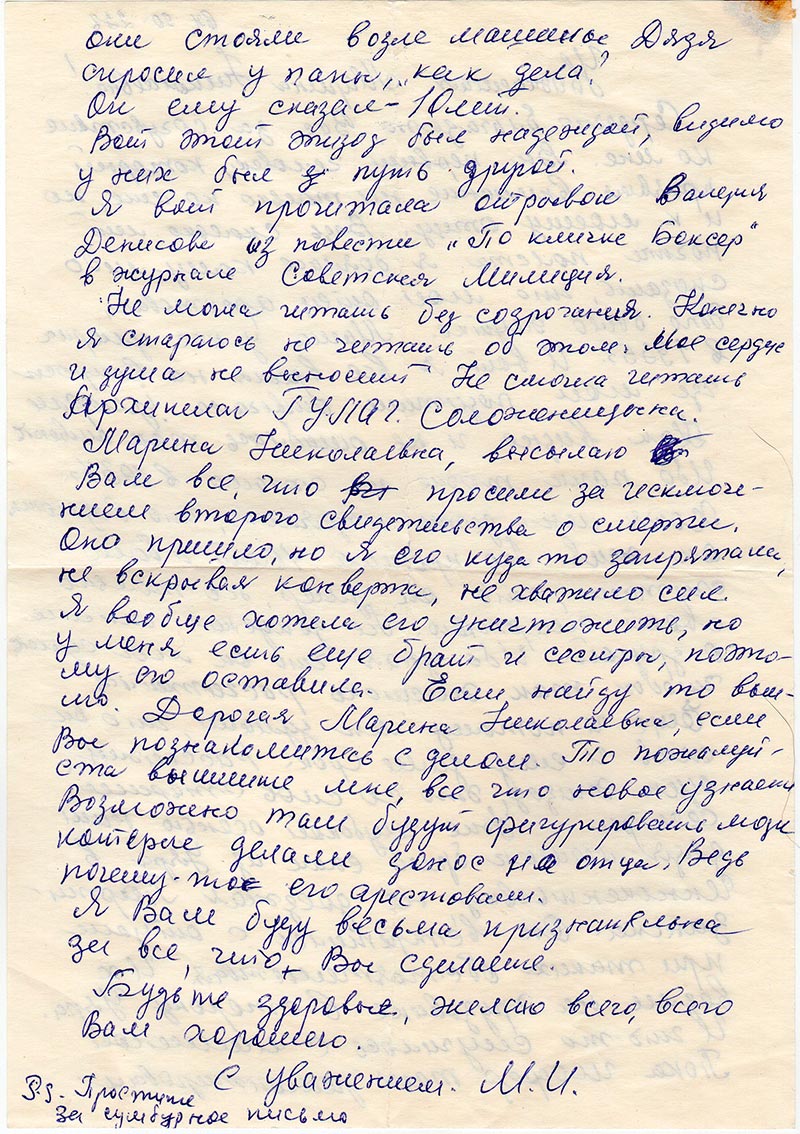 они стояли возле машины Дядя
спросил у папы, „как дела?
Он ему сказал – 10 лет.
Вот этот эпизод был надеждой, видимо
у них был путь другой.
Я вот прочитала отрывок Валерия
Денисова из повести „По кличке Боксер"
в журнале Советская Милиция.
Не могла читать без содрогания. Конечно
я стараюсь не читать об этом. Мое сердце
и душа не выносит Не смогла читать
Архипелаг ГУЛАГ. Соложеницына.
Марина Николаевка, высылаю
Вам все, что просили за исключе-
нием второго свидетельства о смерти.
Оно пришло, но я его куда то запрятала,
не вскрывая конверта, не хватило сил.
Я вообще хотела его уничтожить, но
у меня есть еще брат и сестры, поэто-
му его оставила. Если найду то выш-
лю. Дорогая Марина Николаевка, если
Вы познакомитесь с делом. То пожалуй-
ста вышлите мне, все что новое узнаете
Возможно там будут фигурировать люди
которые делали донос на отца. Ведь
почему-то его арестовали.
Я Вам буду весьма признательна
за все, что Вы сделаете.
Будьте здоровы, желаю всего, всего
Вам хорошего.
С уважением. М.И.
P.S. Простите
за сумбурное письмо